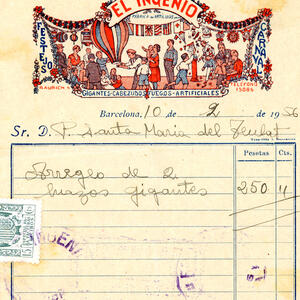 EL INGENIO
FÁBRICA DE ARTÍCULOS
FESTEJOS
CARNAVAL
RAURICH 6
TELÉFONO
15084
GIGANTES-CABEZUDOS JUEGOS-ARTIFICIALES
Barcelona, 10 de 2 de 1956
Sr. D. P. Santa Maria del
Pesetas Cts.
Arreglo de 2
brazos gigantes 250